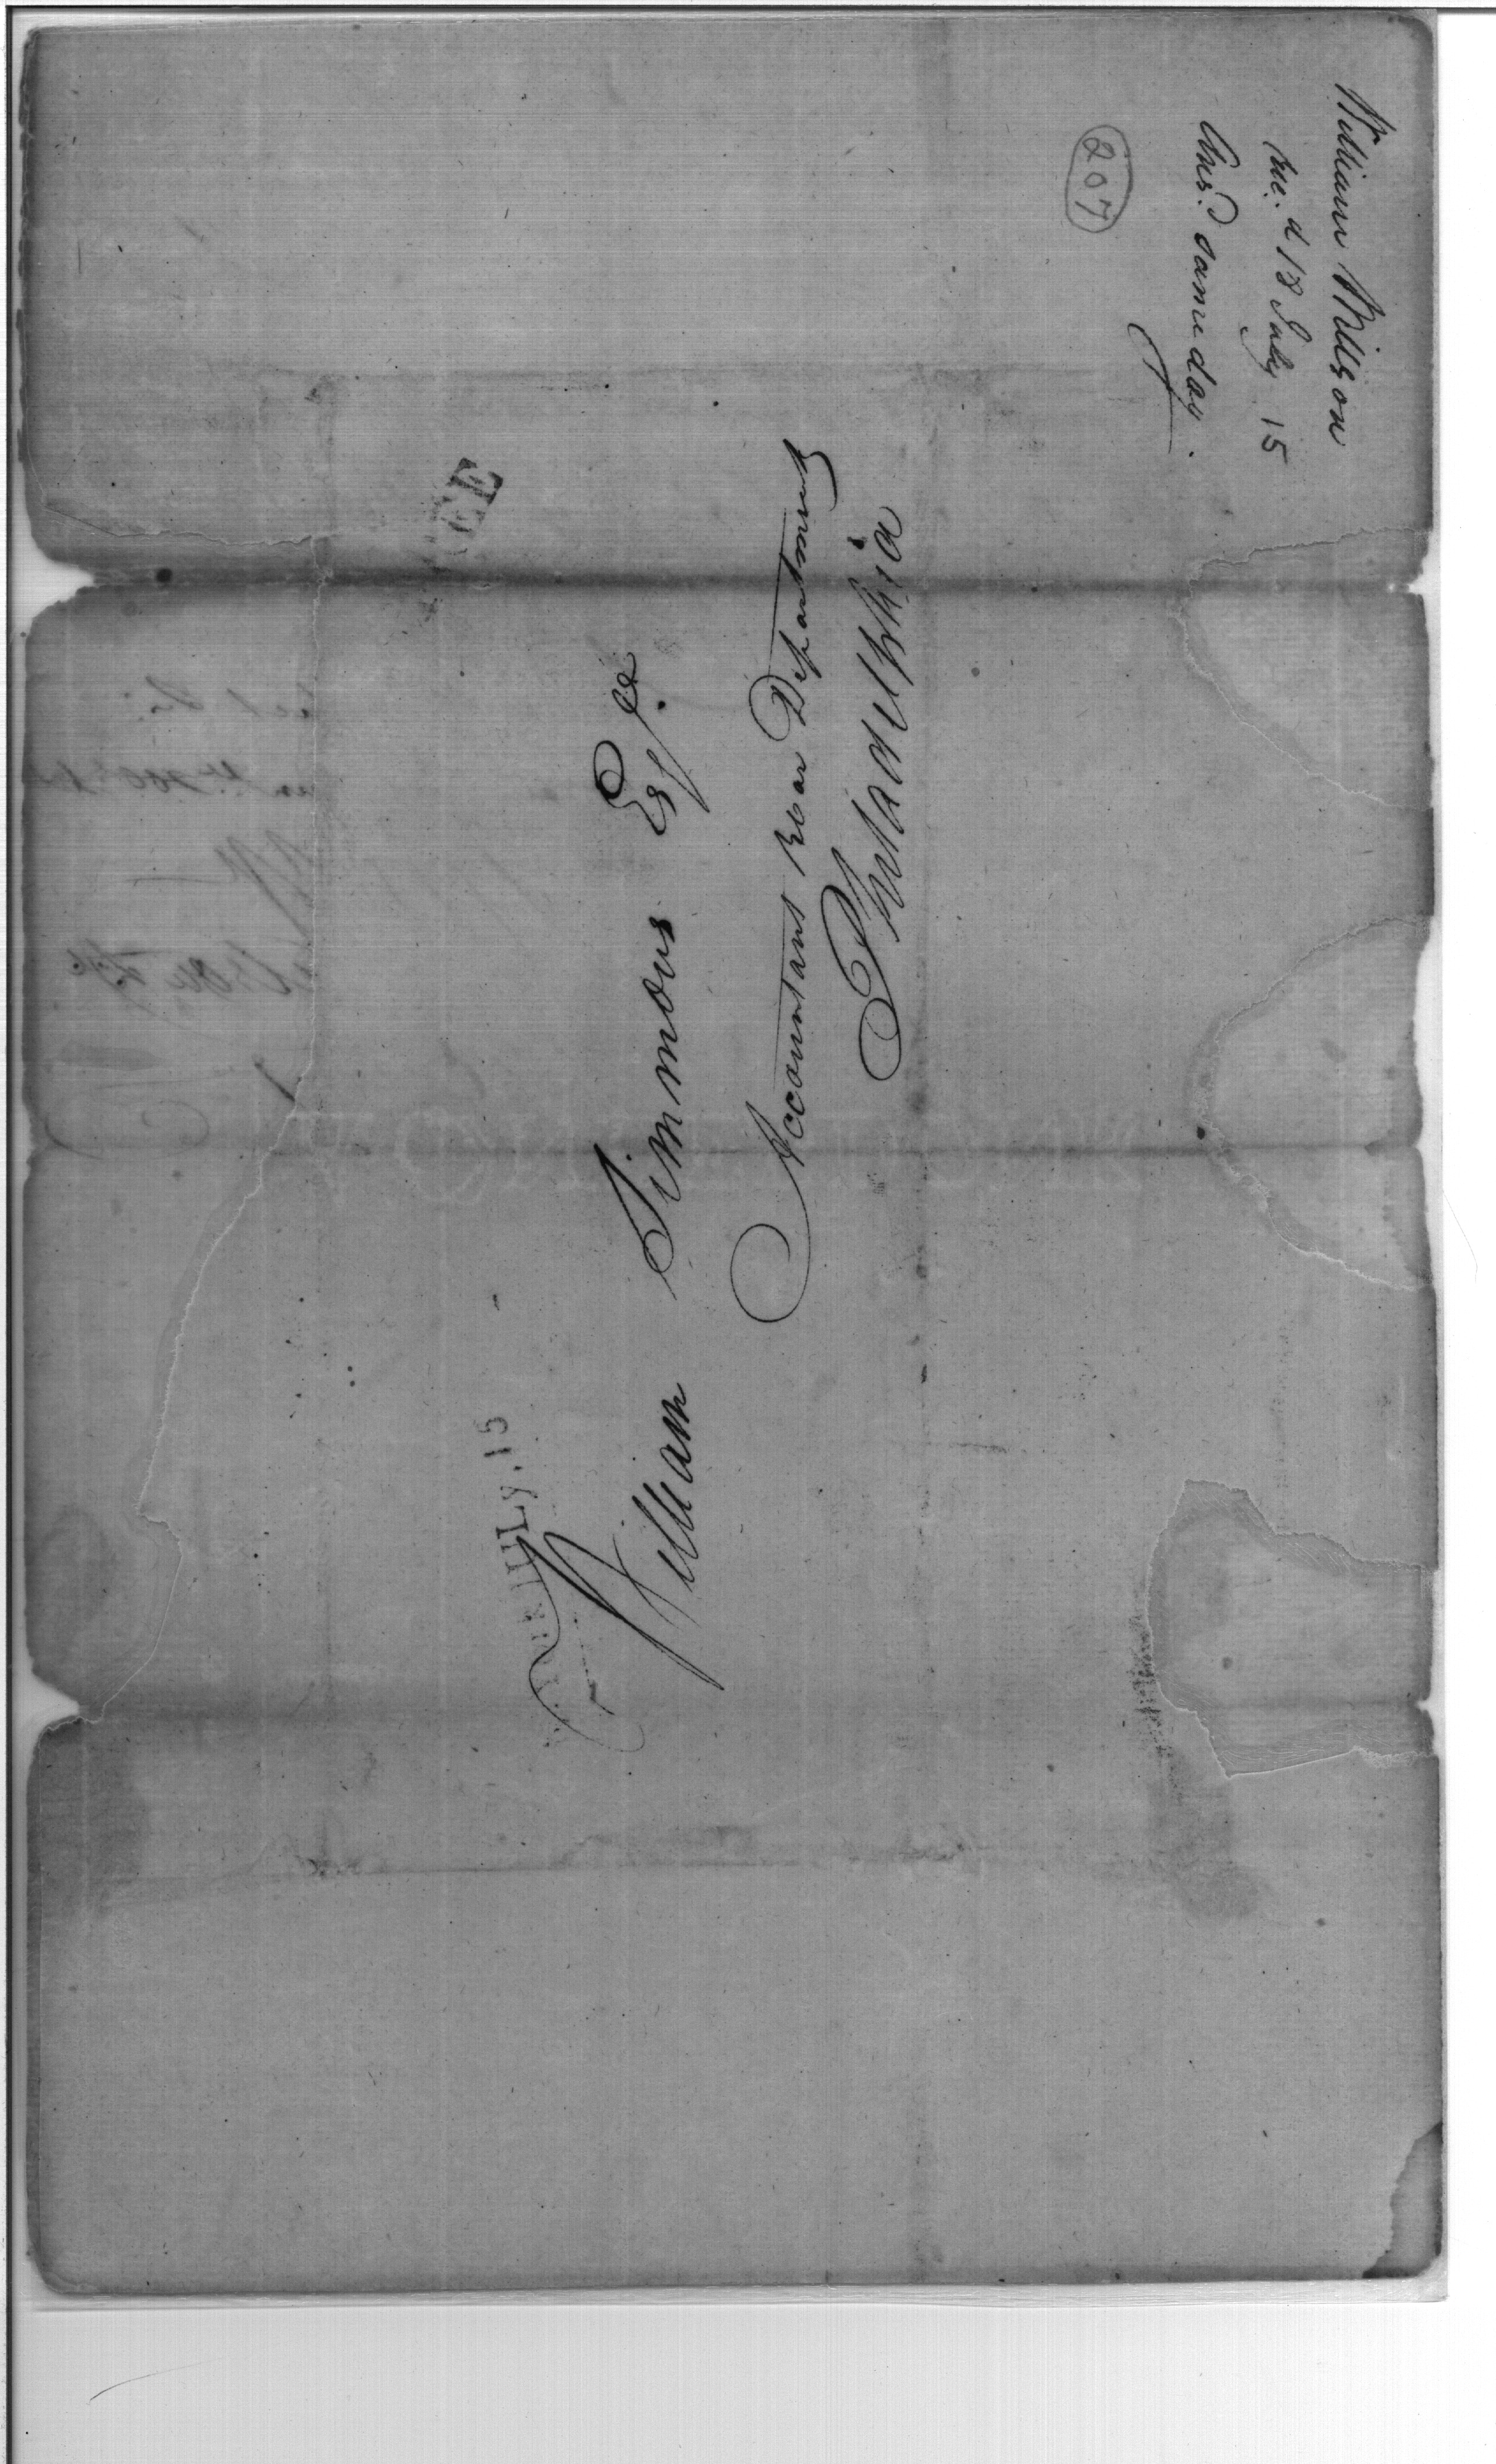 William Willson
rec.d 18 July 15
Ans.d same day.
207
JULY. 15
William Simmons Esqr.
Accountant War Department
Philadelphia